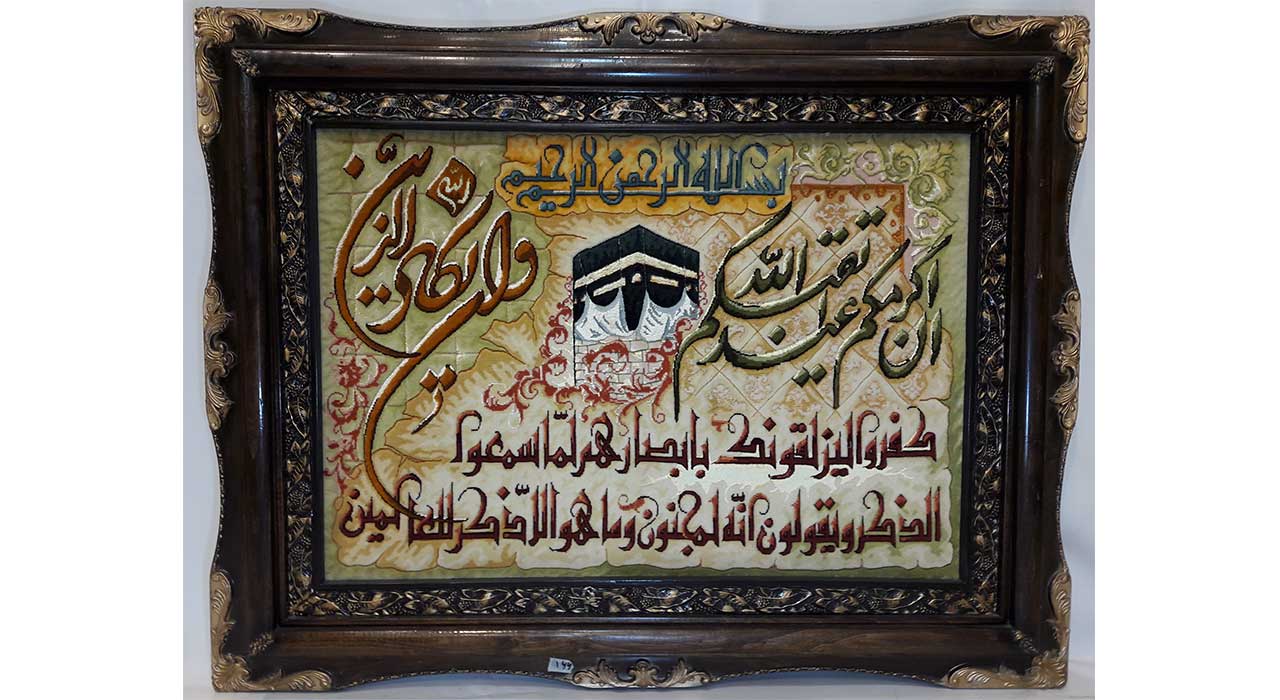 بسم الله الرحمن الرحیم
ان اکرمکم عند الله اتقیکم
وان یکاد الذین
کفروا لیزلقونک بابصارهم لمّا سمعوا
الذکر و یقولون انّه لمجنون و ما هو الاّ ذکر للعالمین